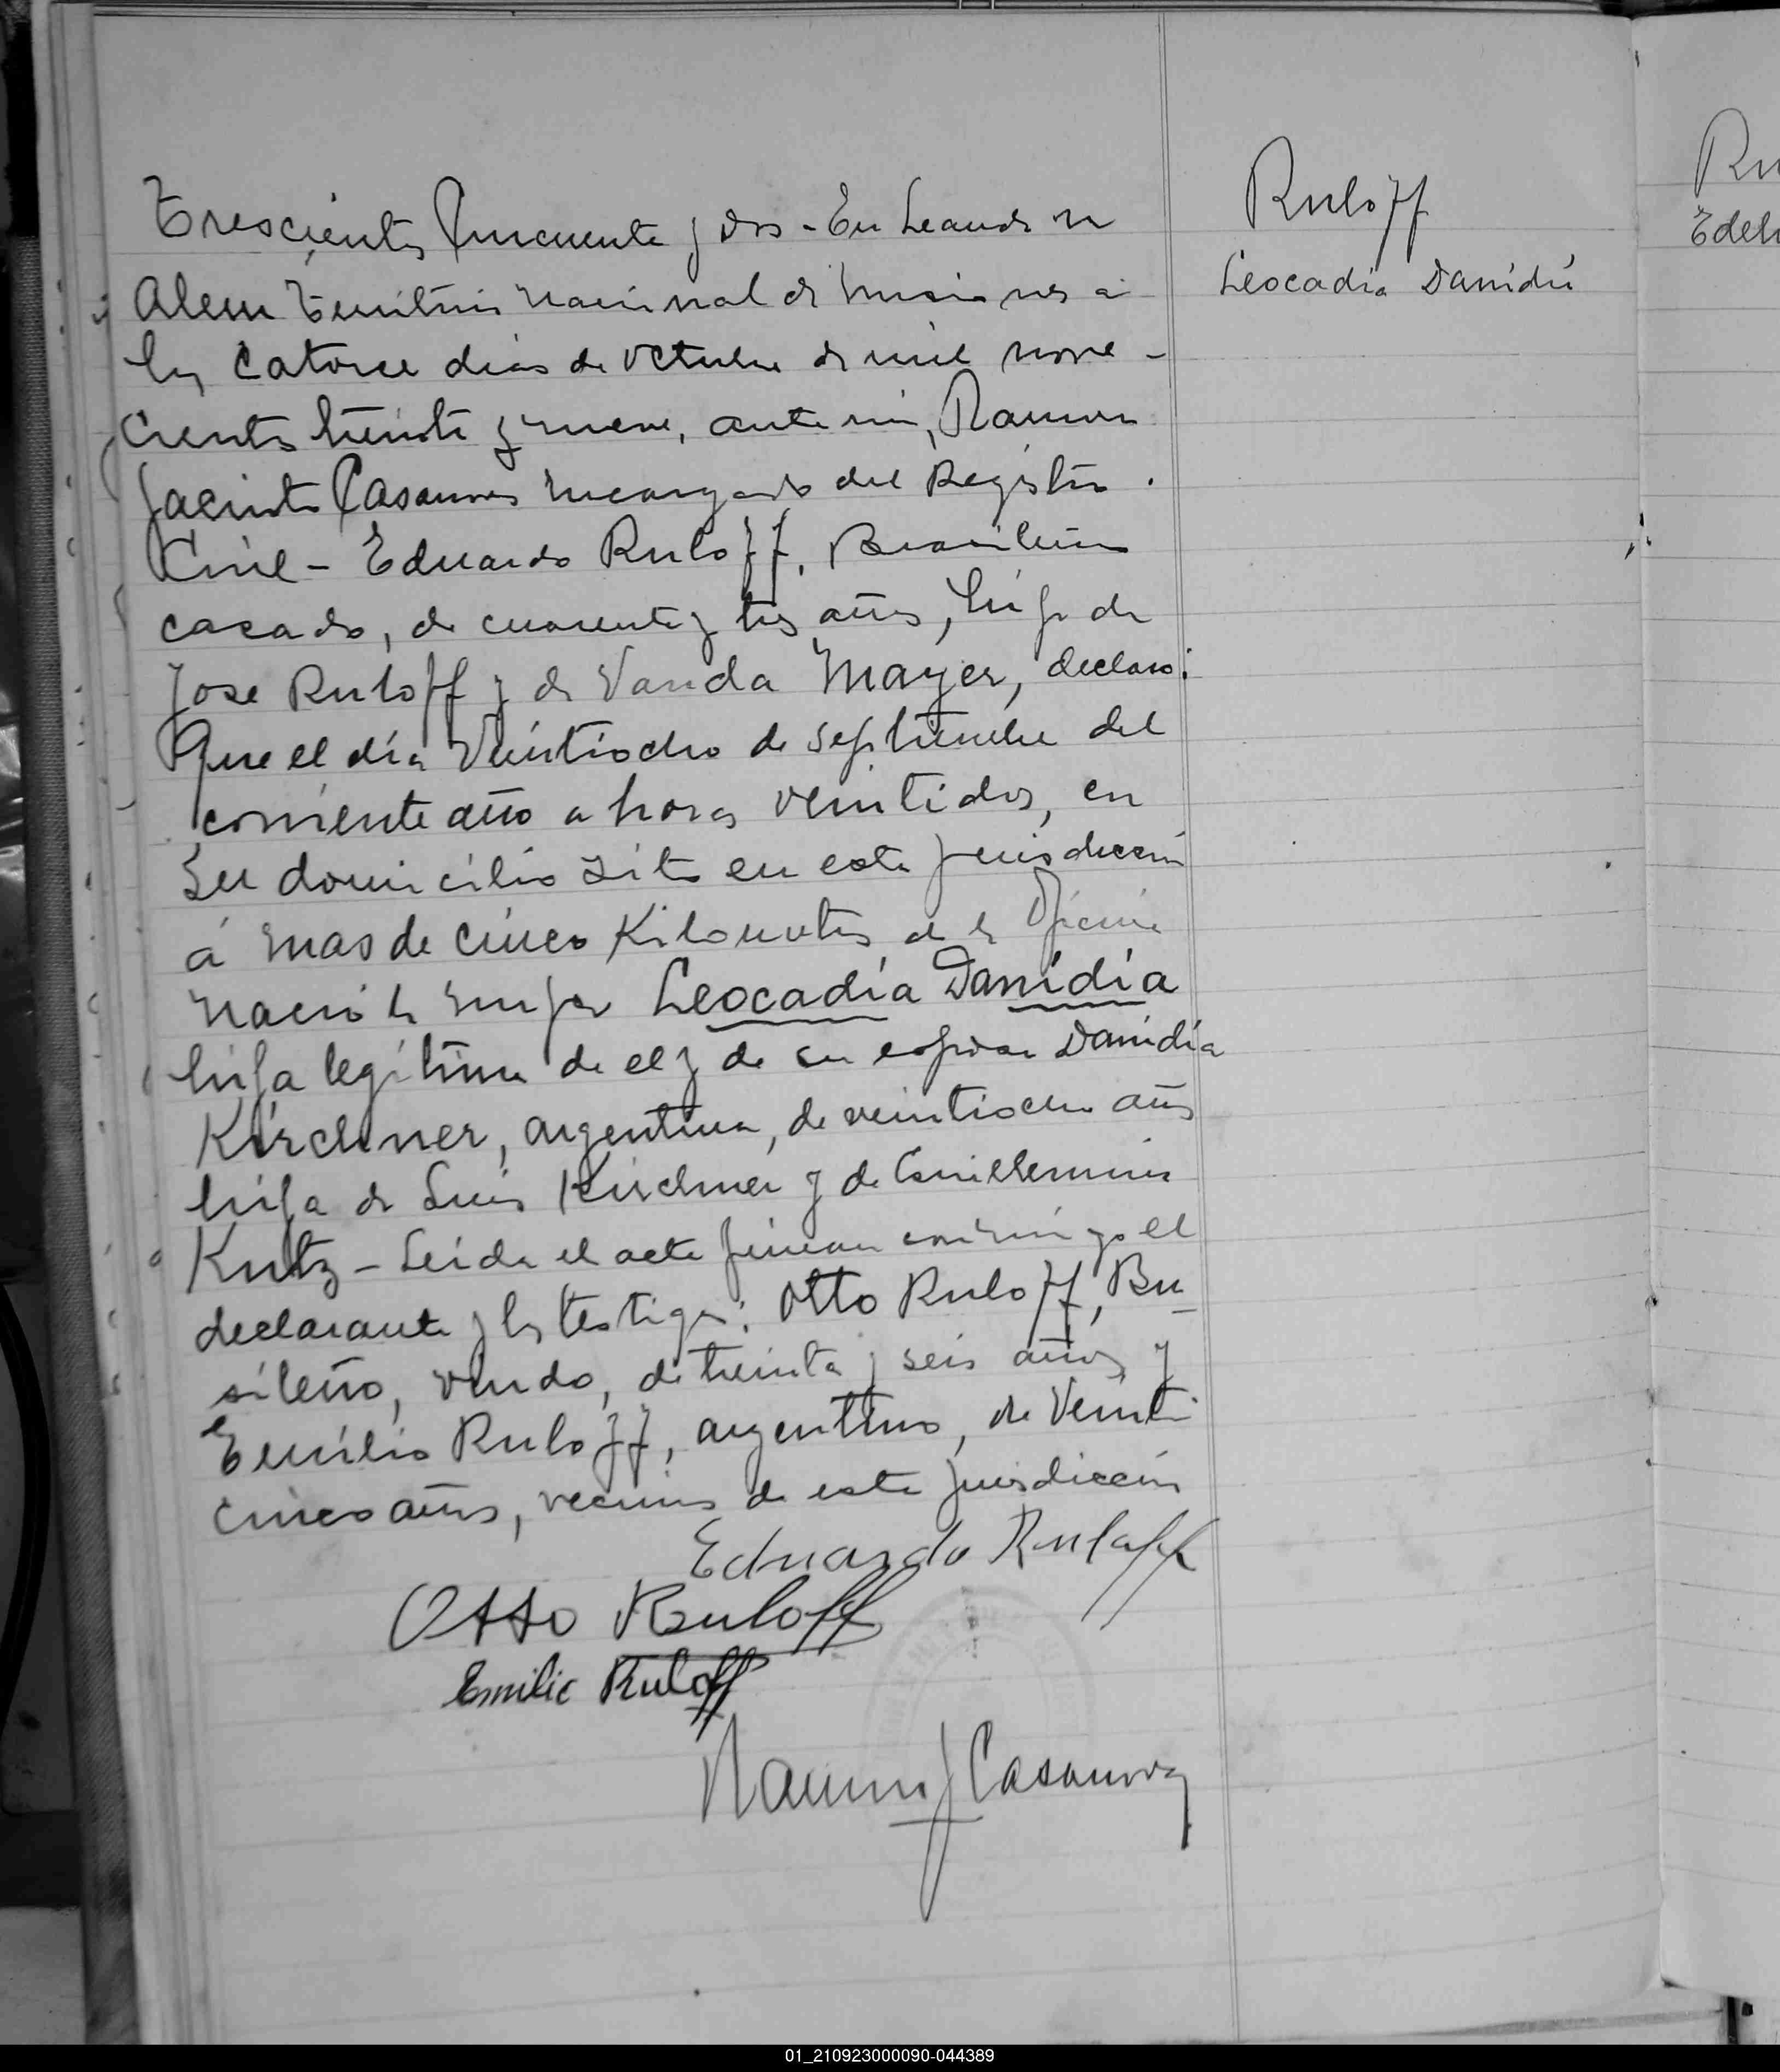 Trescientos Cincuenta y dos - En Leandro N
Alem Territorio Nacional de Misiones a
los catorce dias de octubre de mil nove-
cientos treinta y nueve, ante mi, Ramon
Jacinto Casanova Encargado del Registro
Civil - Eduardo Ruloff, Brasileño
casado, de cuarenta y tres años, hijo de
Jose Ruloff y de Vanda Mayer, declaro:
Que el día Veintiocho de septiembre del
corriente año a horas veintidos, en
su domicilio sito en esta jurisdiccion
á mas de cinco Kilometros de la Oficina
nacio la mujer Leocadía Danidía
hija legitima de el y de su esposa Danidía
Kirchner, argentina, de veintiocho años
hija de Luis Kirchner y de Guillermina
Kutz - Leida el acta firman conmigo el
declarante y los testigos: Otto Ruloff, Bra
sileño, viudo, de treinta y seis años y
Emilio Ruloff, argentino, de Veinti
cinco años, vecinos de esta jurisdiccion
Eduardo Ruloff
Otto Ruloff
Emilio Ruloff
Ramon J Casanova
Ruloff
Leocadia Danidia
Ru
Edel
01_210923000090-044389